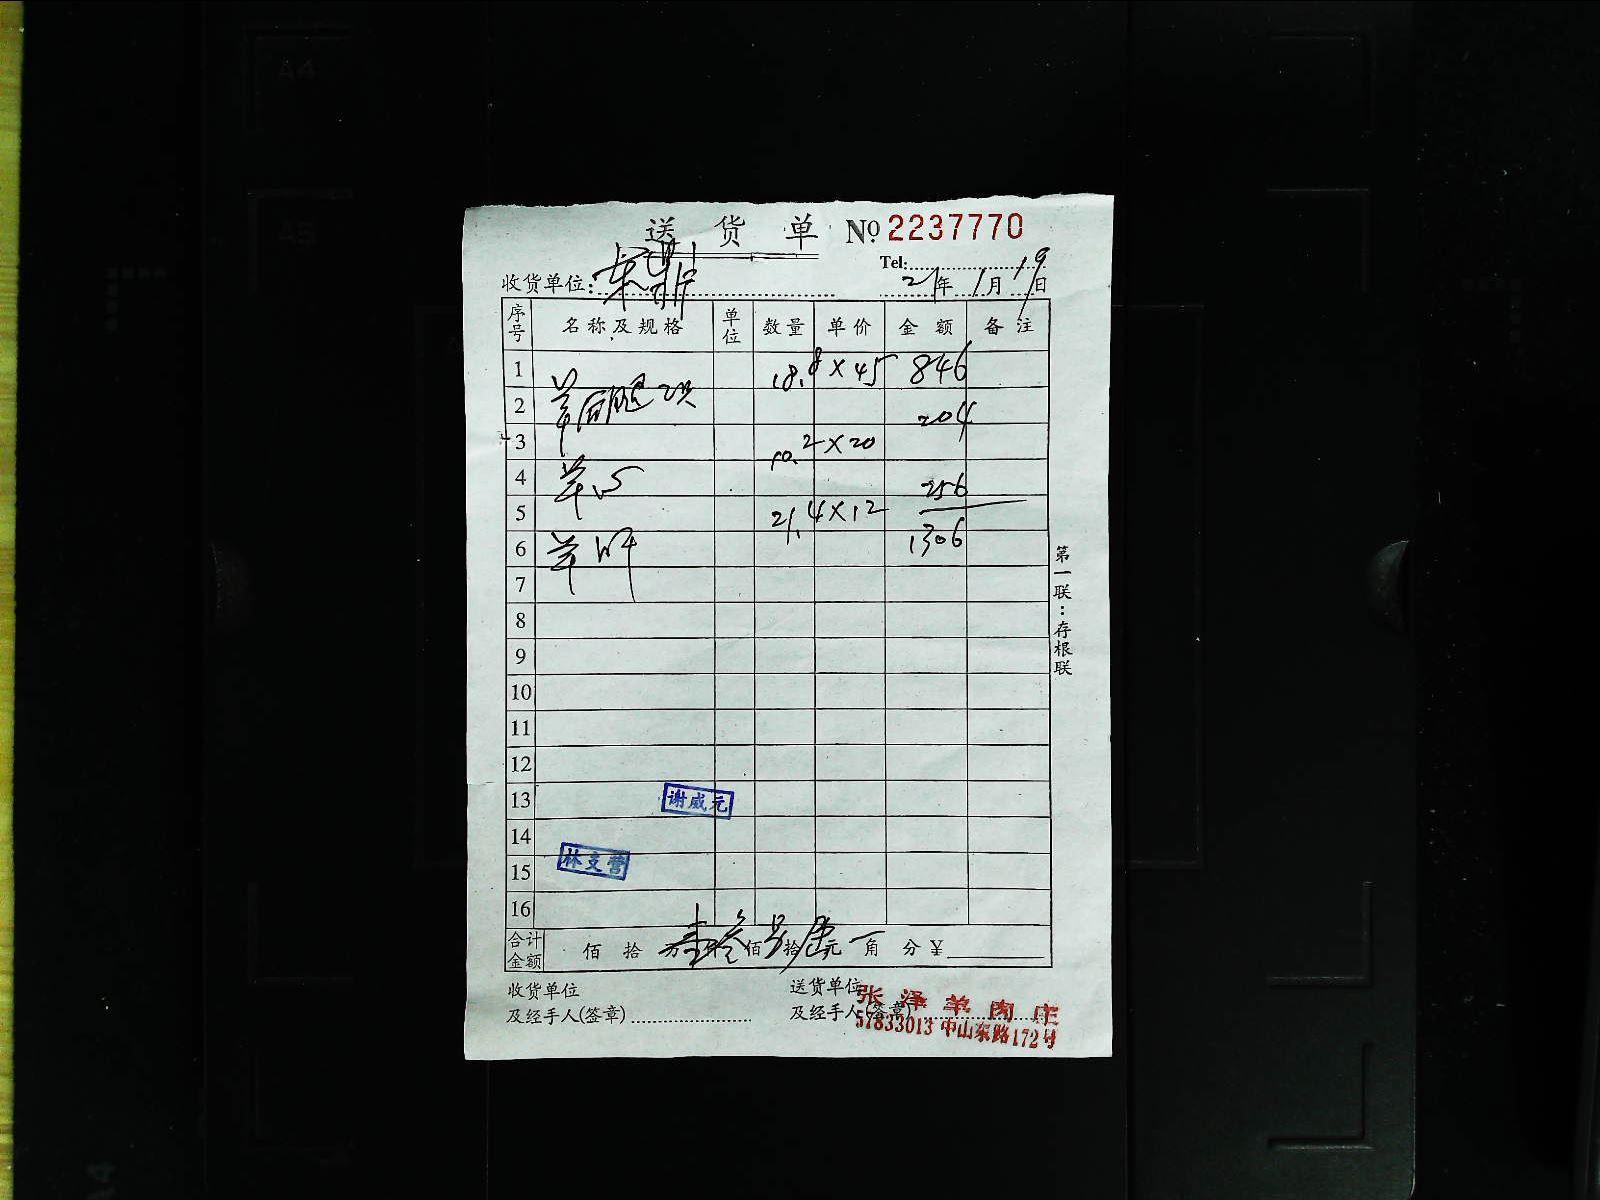 A4
A5
送货单 № 2237770
Tel:
收货单位: 21年1月19日
序号 名称及规格 单位 数量 单价 金额 备注
1 18.8×45 846
2 羊后腿 204
3 10.2×20
4 羊心 256
5 21.4×12
6 羊肝 1306
7
8
9
10
11
12
13 谢威元
14
15 林支营
16
合计金额 佰拾万壹仟叁佰另拾陆元 角 分¥
第一联:存根联
收货单位 送货单位
及经手人(签章) 及经手人(签章)
张泽羊肉庄
57833013 中山东路172号
A4